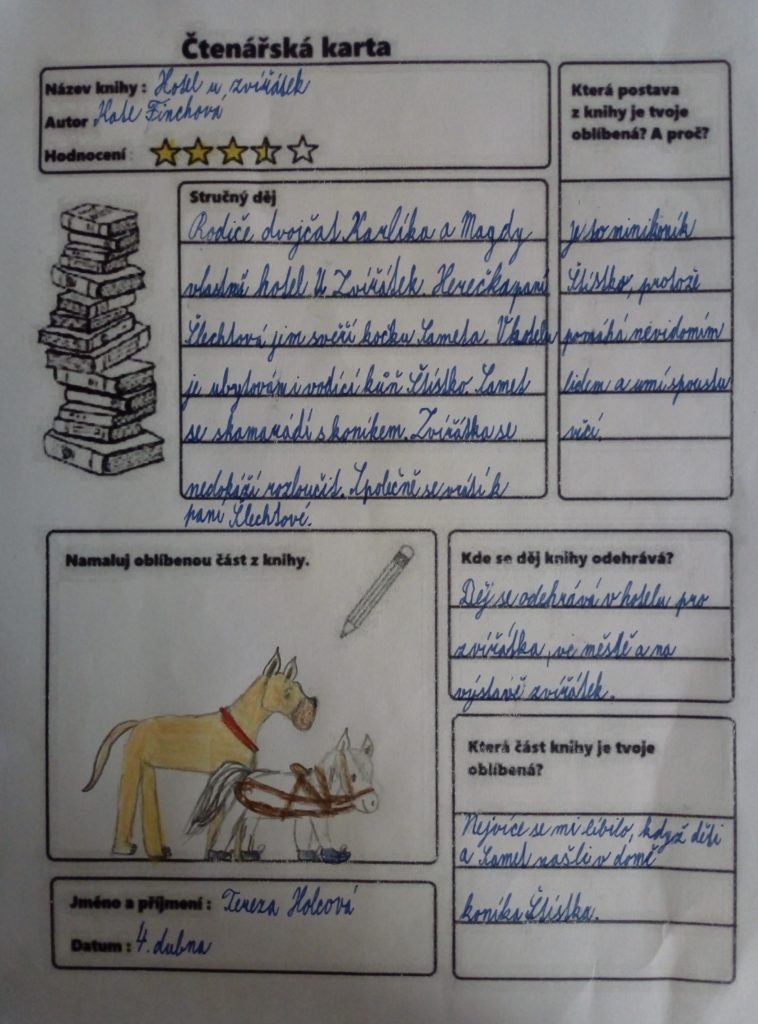 Čtenářská karta
Název knihy : Hotel u zvířátek
Autor Kate Finchová
Hodnocení :
Která postava
z knihy je tvoje
oblíbená? A proč?
Stručný děj
Rodiče dvojčat Karlíka a Magdy
vlastní hotel U Zvířátek. Herečka paní
Šlechtová jim svěří kočku Sameta. V hotelu
je ubytován i vodící kůň Štístko. Samet
se skamarádí s koníkem. Zvířátka se
nedokáží rozloučit. Společně se vrátí k
paní Šlechtové.
je to minikoník
Štístko, protože
pomáhá nevidomím
lidem a umí spoustu
věcí.
Namaluj oblíbenou část z knihy.
Kde se děj knihy odehrává?
Děj se odehrává v hotelu pro
zvířátka, ve městě a na
výstavě zvířátek.
Která část knihy je tvoje
oblíbená?
Nejvíce se mi líbilo, když děti
a Samet našli v domě
koníka Štístka.
Jméno a příjmení : Tereza Holcová
Datum : 4. dubna